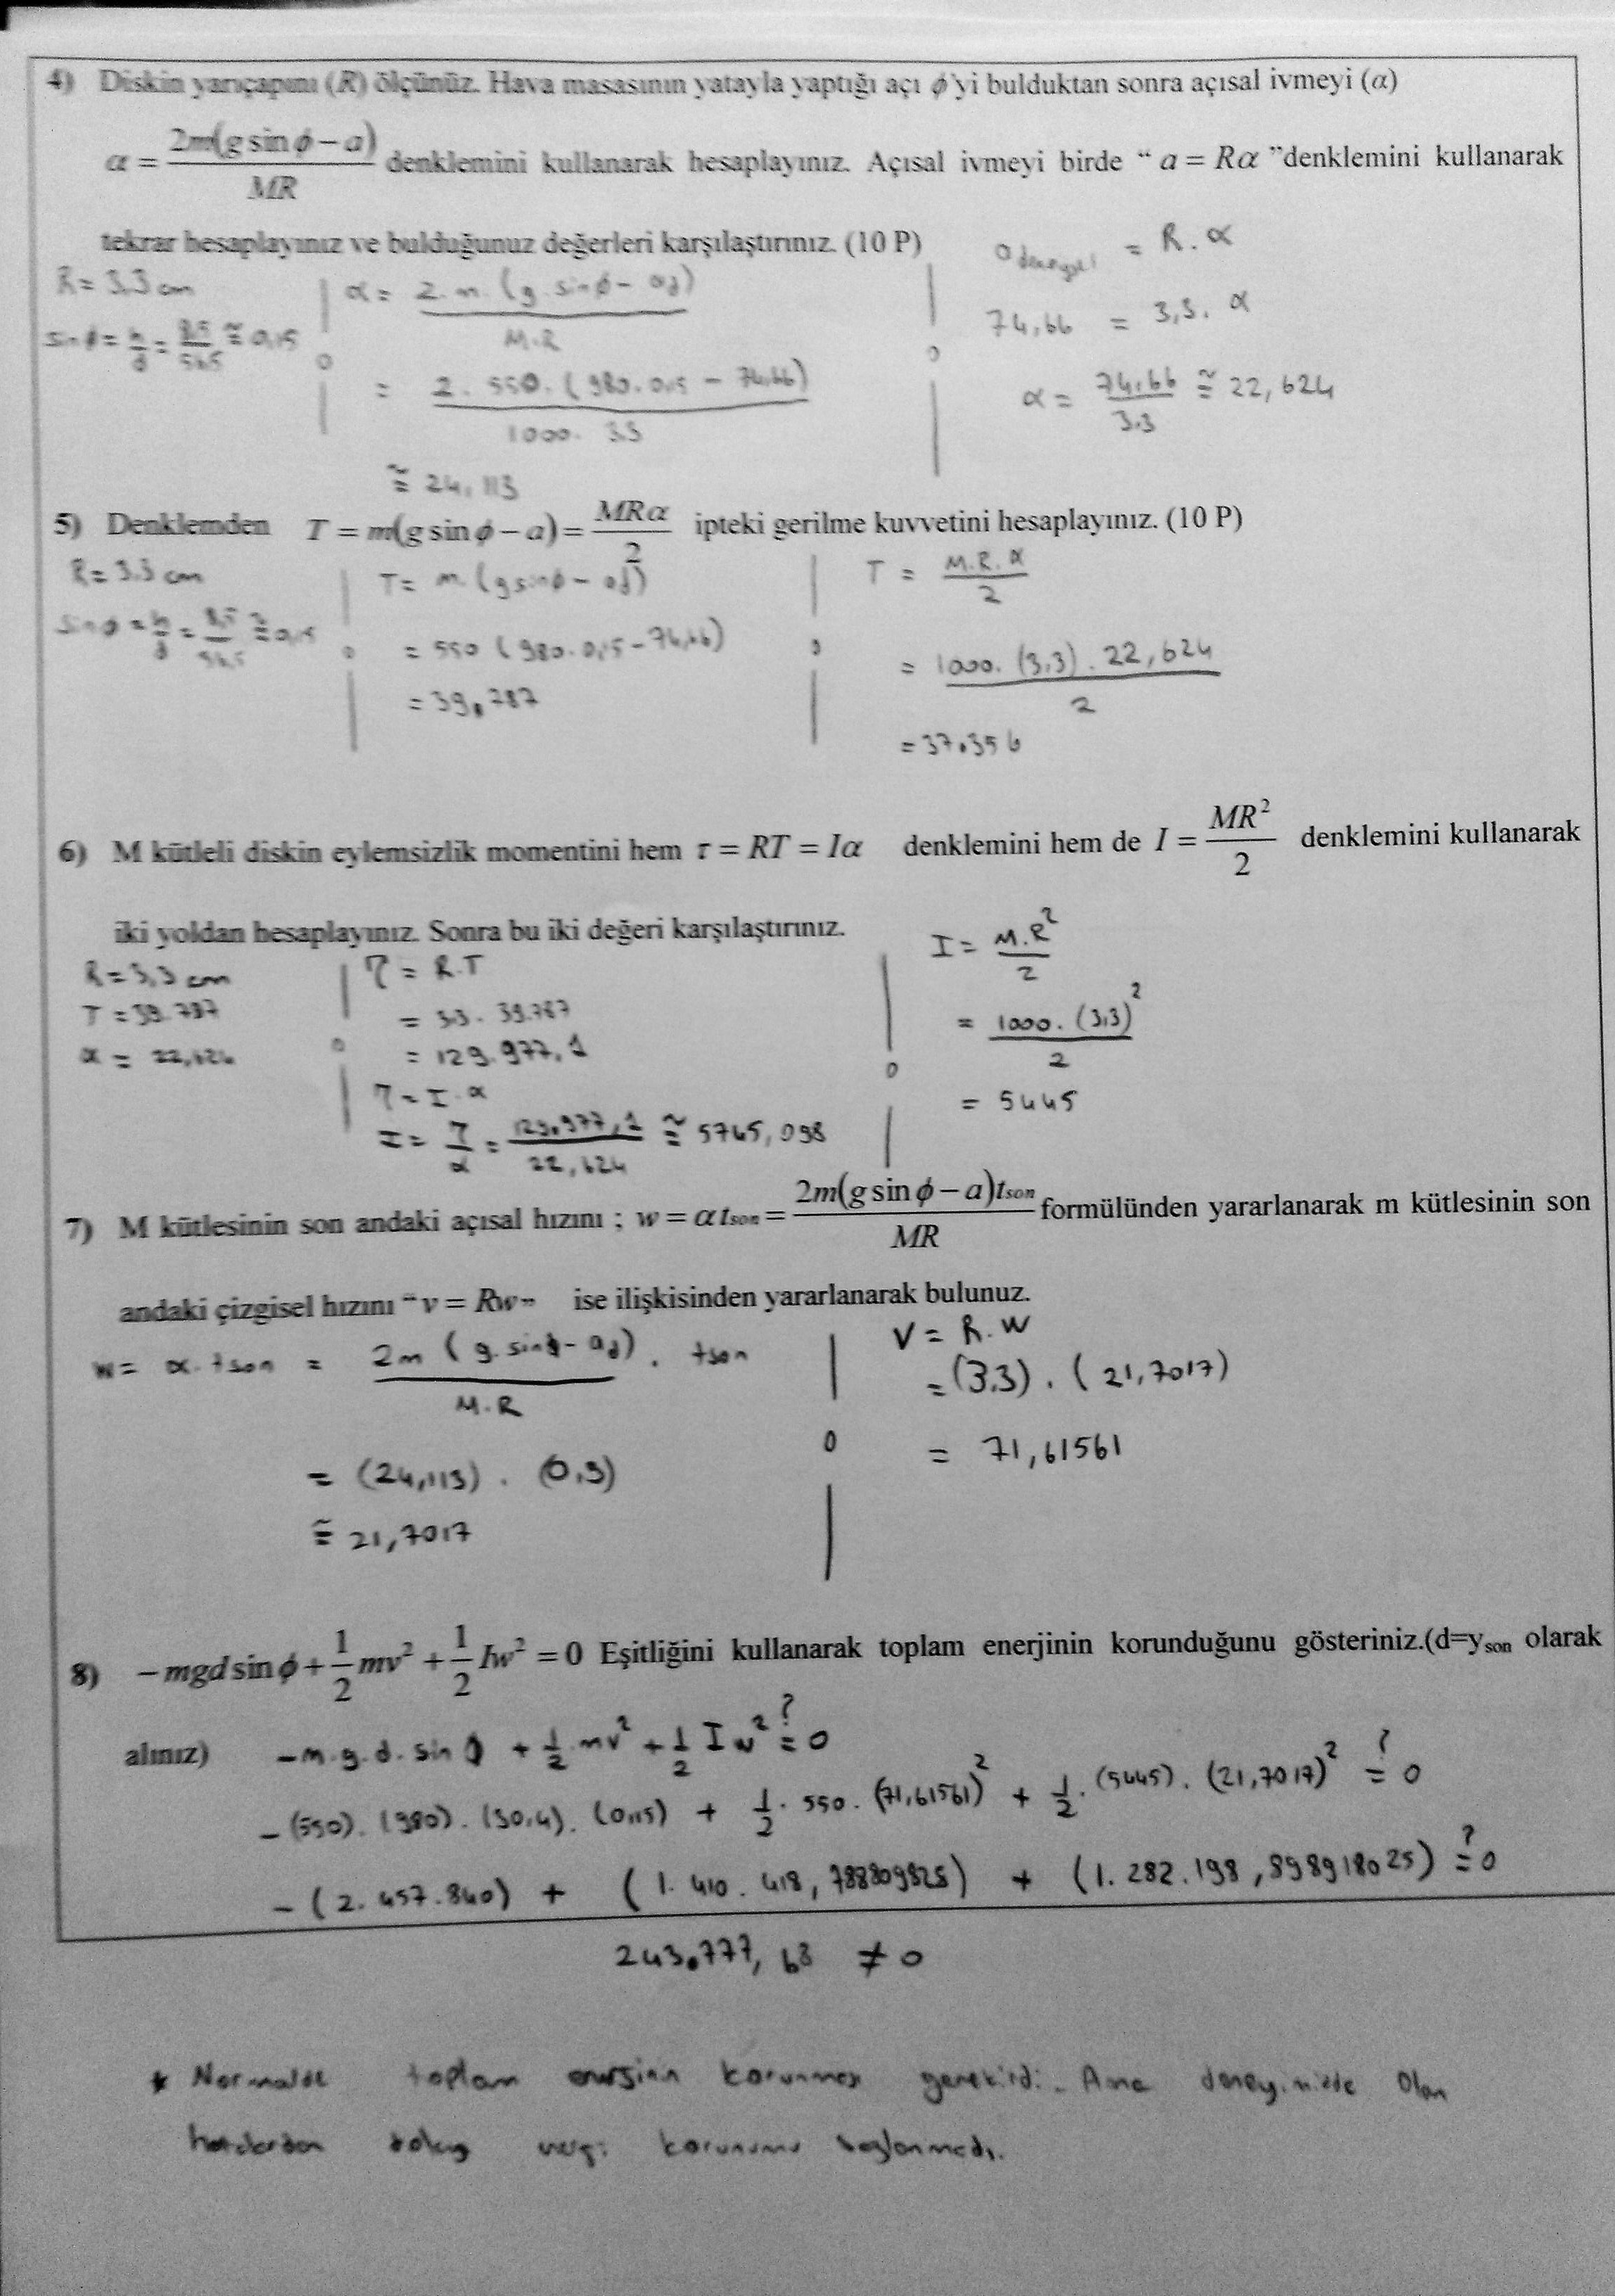 4) Diskin yarıçapını (R) ölçünüz. Hava masasının yatayla yaptığı açı ϕ'yi bulduktan sonra açısal ivmeyi (α)
α = 2m(g sin ϕ − a) / MR denklemini kullanarak hesaplayınız. Açısal ivmeyi birde “ a = Rα ”denklemini kullanarak
tekrar hesaplayınız ve bulduğunuz değerleri karşılaştırınız. (10 P)
R = 3,3 cm
sinϕ = h/d = 8,5/56,5 ≅ 0,15
α = 2.m.(g.sinϕ − ad) / M.R
= 2.550.(980.0,15 − 74,66) / 1000.3,3
≅ 24,113
a deneysel = R.α
74,66 = 3,3.α
α = 74,66/3,3 ≅ 22,624
5) Denklemden T = m(g sin ϕ − a) = MRα/2 ipteki gerilme kuvvetini hesaplayınız. (10 P)
R = 3,3 cm
sinϕ = h/d = 8,5/56,5 ≅ 0,15
T = m.(g sinϕ − ad)
= 550 (980.0,15 − 74,66)
= 39.787
T = M.R.α / 2
= 1000.(3,3).22,624 / 2
= 37.356
6) M kütleli diskin eylemsizlik momentini hem τ = RT = Iα denklemini hem de I = MR²/2 denklemini kullanarak
iki yoldan hesaplayınız. Sonra bu iki değeri karşılaştırınız.
R = 3,3 cm
T = 39.787
α = 22,624
τ = R.T
= 3,3.39.787
= 129.977,1
τ = I.α
I = τ/α = 129.977,1 / 22,624 ≅ 5745,098
I = M.R² / 2
= 1000.(3,3)² / 2
= 5445
7) M kütlesinin son andaki açısal hızını ; w = α tson = 2m(g sin ϕ − a)tson / MR formülünden yararlanarak m kütlesinin son
andaki çizgisel hızını “v = Rw” ise ilişkisinden yararlanarak bulunuz.
w = α.tson = 2m (g.sinϕ − ad) / M.R . tson
= (24,113) . (0,9)
≅ 21,7017
V = R.W
= (3,3) . (21,7017)
= 71,61561
8) − mgd sin ϕ + 1/2 mv² + 1/2 Iw² = 0 Eşitliğini kullanarak toplam enerjinin korunduğunu gösteriniz.(d=yson olarak
alınız) −m.g.d.sinϕ + 1/2 mv² + 1/2 Iw² ?= 0
−(550).(980).(30,4).(0,15) + 1/2.550.(71,61561)² + 1/2.(5445).(21,7017)² ?= 0
−(2.457.840) + (1.410.418,788809825) + (1.282.198,898918025) ?= 0
243.777,68 ≠ 0
* Normalde toplam enerjinin korunması gerekirdi. Ama deneyimizde olan
hatalardan dolayı enerji korunumu sağlanmadı.